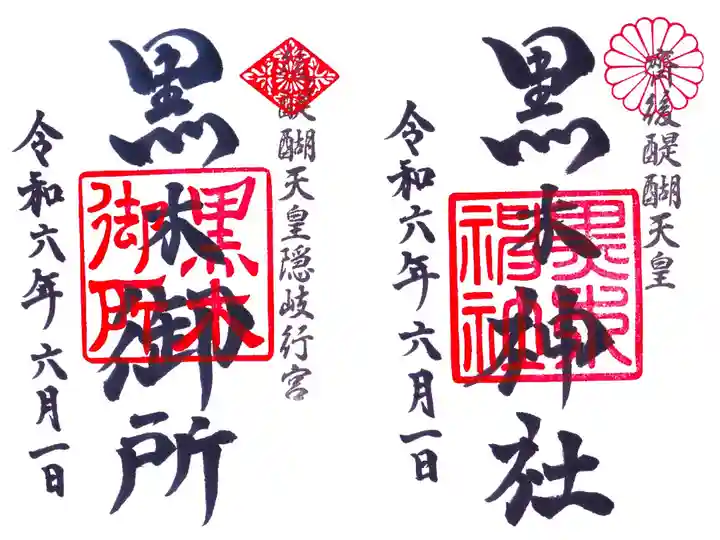 齋後醍醐天皇
黒木神社
黒木神社
令和六年六月一日
後醍醐天皇隠岐行宮
黒木御所
黒木御所
令和六年六月一日